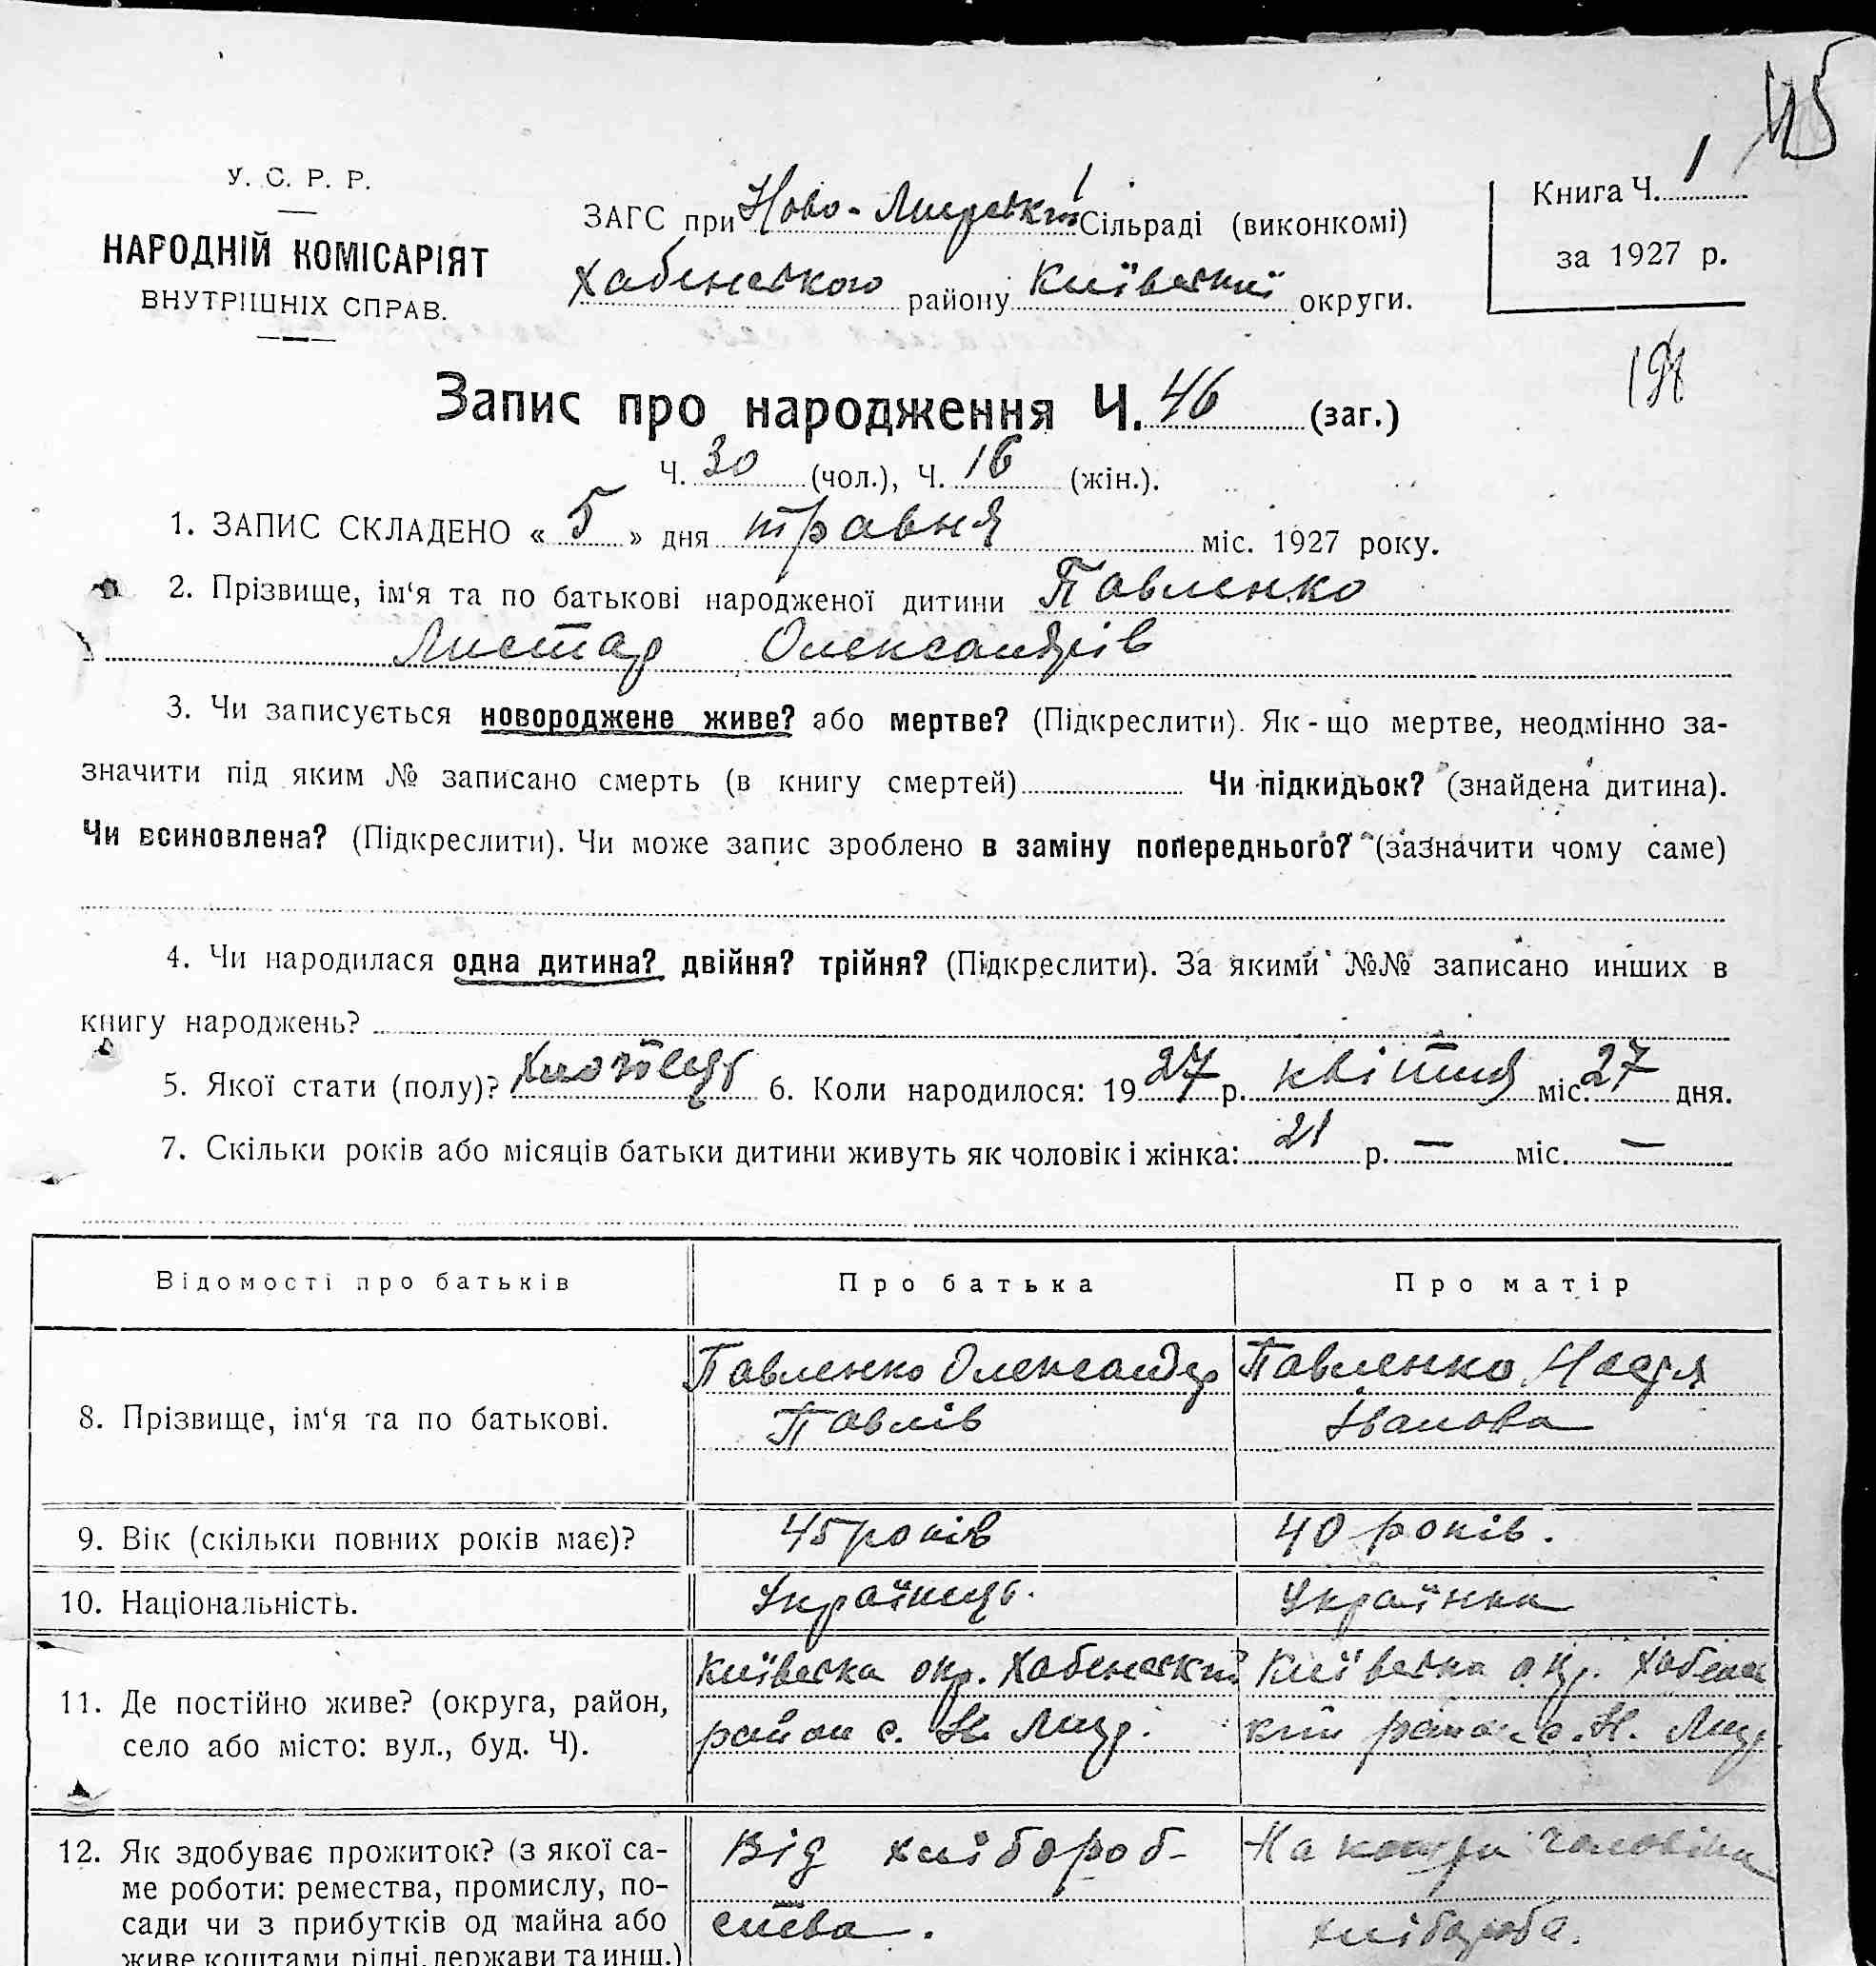 145
У. С. Р. Р.
НАРОДНІЙ КОМІСАРІЯТ
ВНУТРІШНІХ СПРАВ.
ЗАГС при Ново-Мирській Сільраді (виконкомі)
Хабенського району Київський округи.
Книга Ч. 1
за 1927 р.
Запис про народження Ч. 46 (заг.)
Ч. 30 (чол.), Ч. 16 (жін.).
1. ЗАПИС СКЛАДЕНО « 5 » дня травня міс. 1927 року.
2. Прізвище, ім‘я та по батькові народженої дитини Павленко
Нистар Олександрів
3. Чи записується новороджене живе? або мертве? (Підкреслити). Як-що мертве, неодмінно за-
значити під яким № записано смерть (в книгу смертей) Чи підкидьок? (знайдена дитина).
Чи всиновлена? (Підкреслити). Чи може запис зроблено в заміну попереднього? (зазначити чому саме)
4. Чи народилася одна дитина? двійня? трійня? (Підкреслити). За якими №№ записано инших в
книгу народжень?
5. Якої стати (полу)? Хлопець 6. Коли народилося: 1927 р. квітня міс. 27 дня.
7. Скільки років або місяців батьки дитини живуть як чоловік і жінка: 21 р. — міс. —
Відомості про батьків Про батька Про матір
8. Прізвище, ім‘я та по батькові. Павленко Олександр Павлів Павленко Настя Іванова
9. Вік (скільки повних років має)? 45 років 40 років.
10. Національність. Українець. Українка
11. Де постійно живе? (округа, район,
село або місто: вул., буд. Ч). Київська окр. Хабенський район с. Н. Мир. Київська окр. Хабенский район с. Н. Мир
12. Як здобуває прожиток? (з якої са-
ме роботи: ремества, промислу, по-
сади чи з прибутків од майна або
живе коштами рідні, держави та инш.) Від хліборобства. На кошти чоловіка хлібороба.